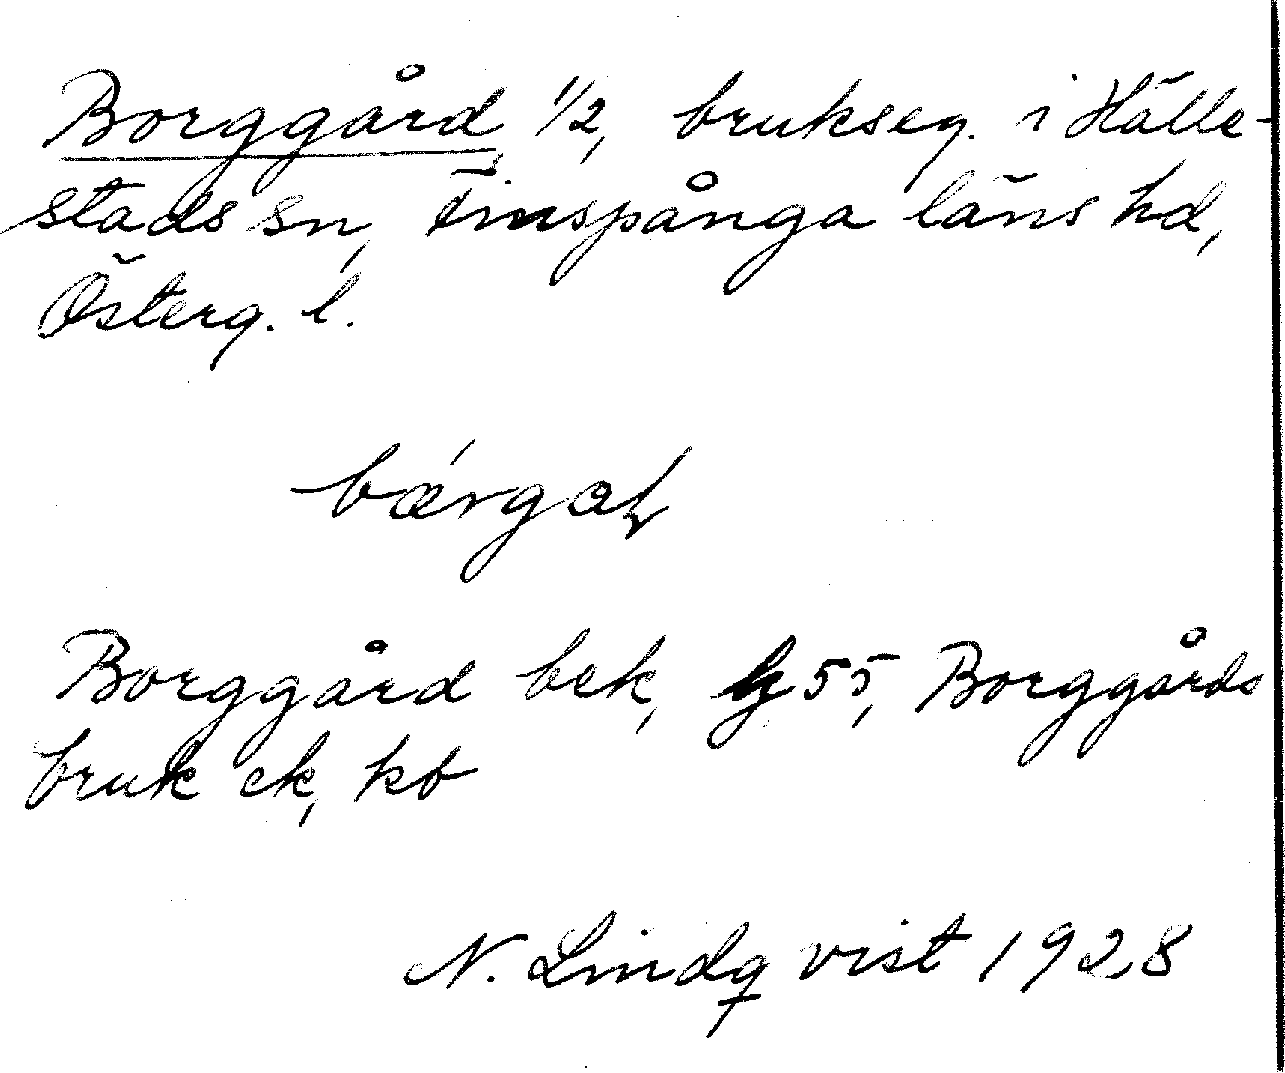 Borggård 1/2, brukseg. i Hälle-
stads sn, Finspånga läns hd,
Österg. l.
Borggård bek, 55, Borggårds
bruk ek, kb
N. Lindqvist 1928